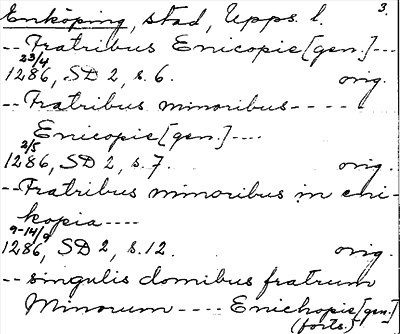 Enköping, stad, Upps. l. 3.
-- Fratribus Enicopie [gen.] ---
23/4
1286, SD 2, s. 6. orig.
-- Fratribus minoribus - - - -
Enicopie [gen.] ----
2/5
1286, SD 2, s. 7. orig.
-- Fratribus minoribus in eni-
kopia ----
9-14/9
1286, SD 2, s. 12. orig.
-- singulis domibus fratrum
Minorum ---- Enichopie [gen.]
(forts.)